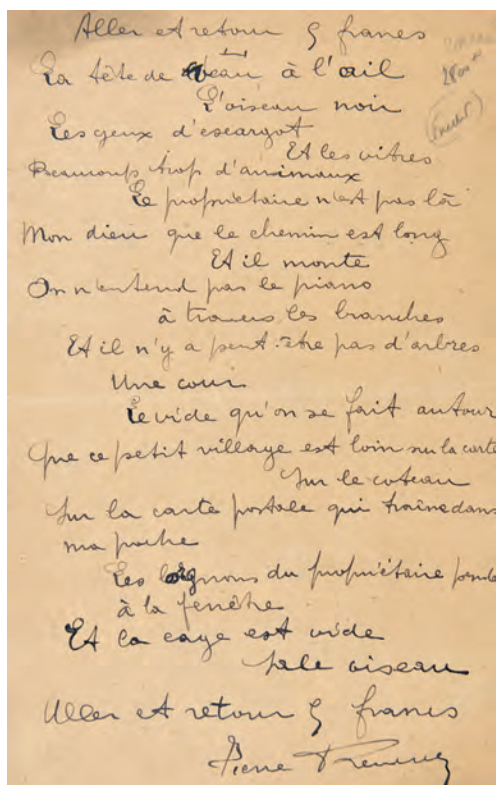 Aller et retour 5 francs
La tête de veau à l'ail
L'oiseau noir
Les yeux d'escargot
Et les vitres
Beaucoup trop d'animaux
Le propriétaire n'est pas là
Mon dieu que le chemin est long
Et il monte
On n'entend pas le piano
à travers les branches
Et il n'y a peut-être pas d'arbres
Une cour
Le vide qu'on se fait autour
Que ce petit village est loin sur la carte
Sur le coteau
Sur la carte postale qui traîne dans
ma poche
Les lorgnons du propriétaire pende
à la fenêtre
Et la cage est vide
Sale oiseau
Aller et retour 5 francs
Pierre Reverdy